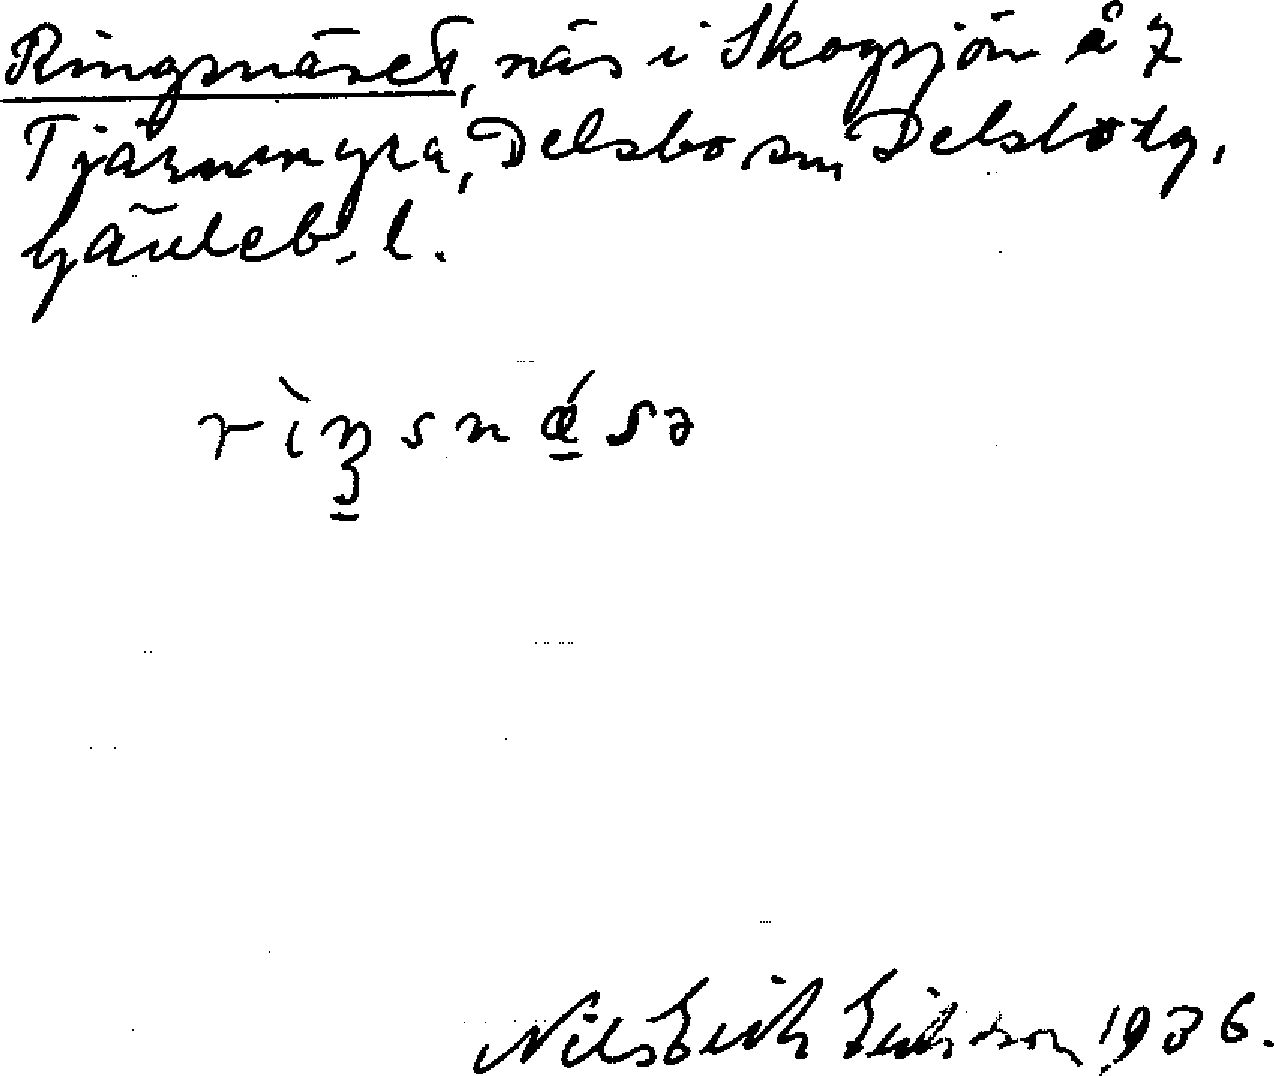 Ringsnäset, näs i Skogsjön å 7
Tjärnmyra, Delsbo sn, Delsbo tg,
Gävleb. l.
rìŋsnǽsə
Nils Erik Erikson 1936.